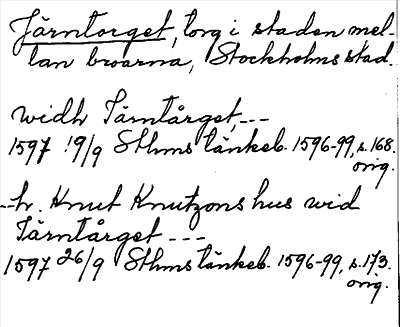 Järntorget, torg i staden mel-
lan broarna, Stockholms stad.
widh Järntårget, ---
1597 19/9 Sthms tänkeb. 1596-99, s. 168.
orig.
--h. Knut Knutzons hus wid
Järntårget ---
1597 26/9 Sthms tänkeb. 1596-99, s. 173.
orig.